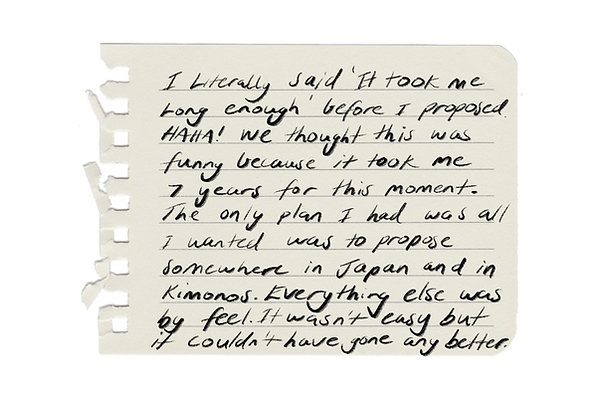 I Literally said 'It took me
Long enough' before I proposed.
HAHA! We thought this was
funny because it took me
7 years for this moment.
The only plan I had was all
I wanted was to propose
Somewhere in Japan and in
Kimonos. Everything else was
by feel. It wasn't easy but
it couldn't have gone any better.